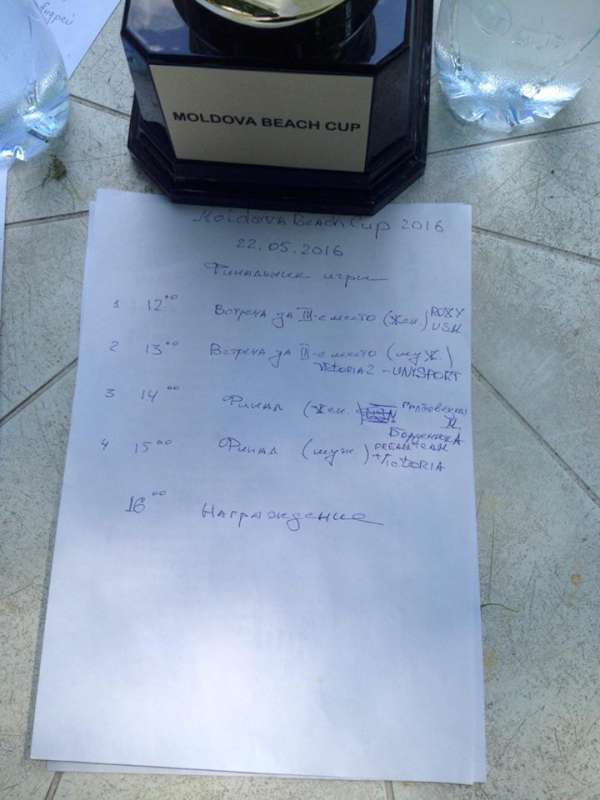 Андрей
MOLDOVA BEACH CUP
Moldova Beach Cup 2016
22.05.2016
Финальные игры
1 12 00 Встреча за III-е место (жен.) ROXY
USM
2 13 00 Встреча за III-е место (муж.)
Victoria 2 - UNISPORT
3 14 00 Финал (жен.)
4 15 00 Финал (муж) DREAM TEAM
VICTORIA
16 00 Награждение